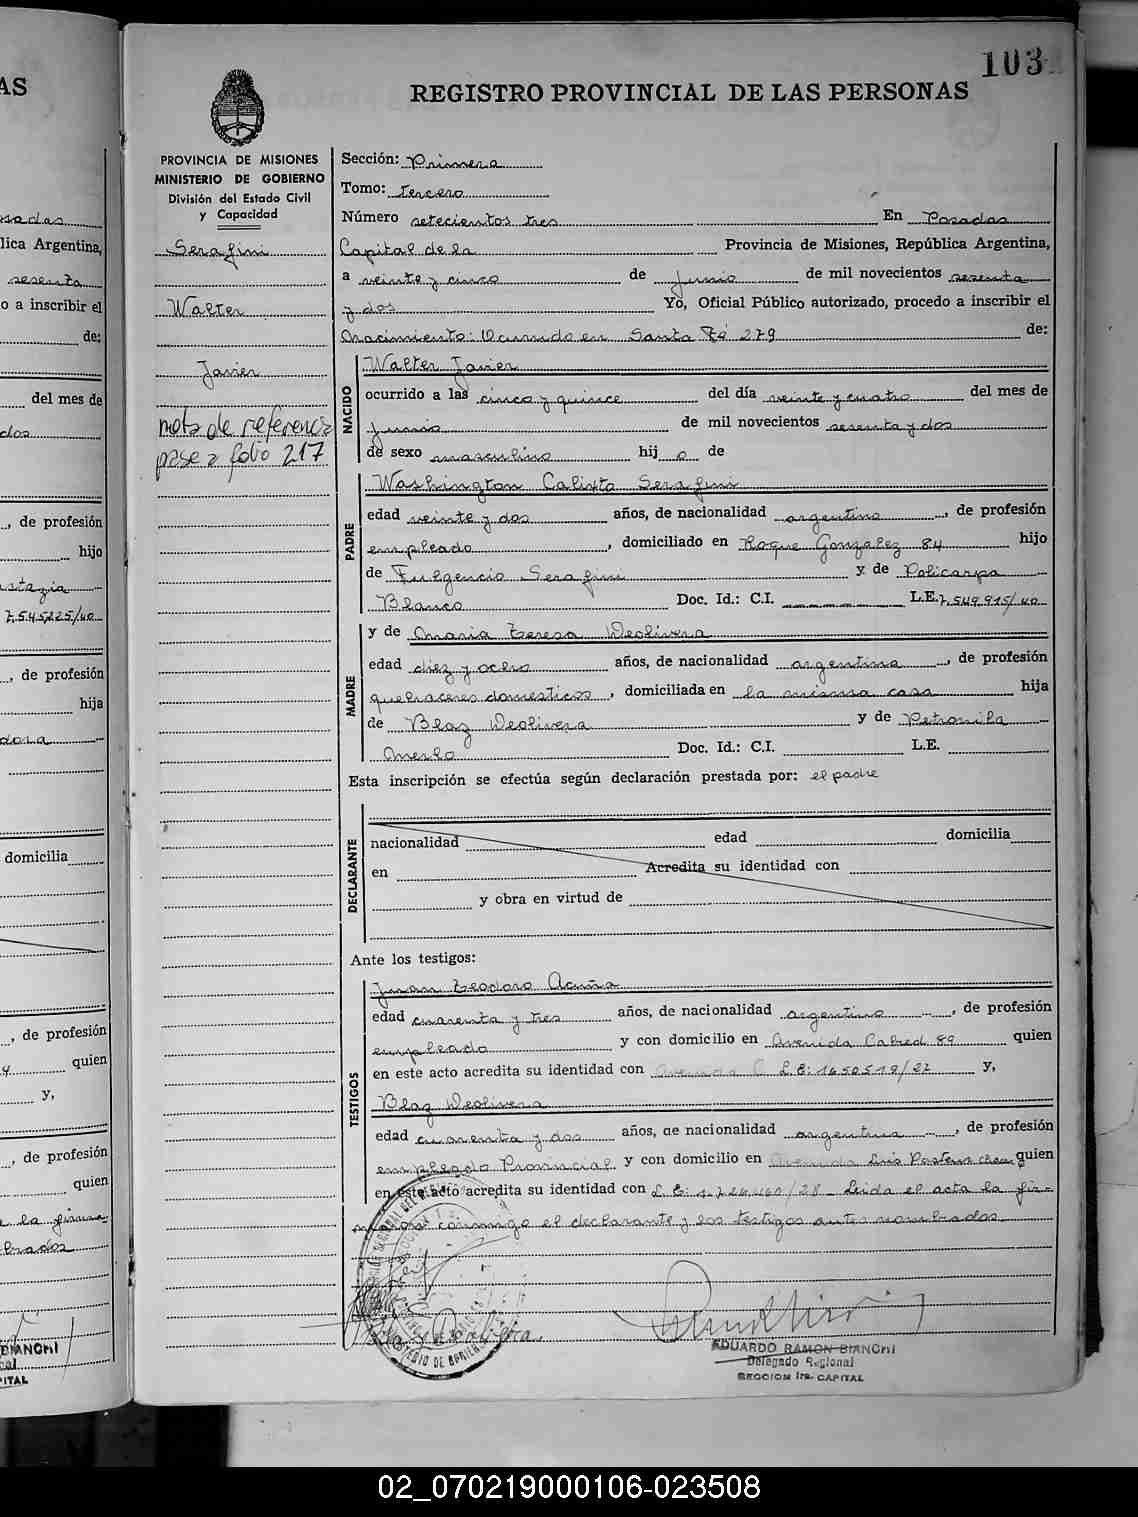 103
REGISTRO PROVINCIAL DE LAS PERSONAS
PROVINCIA DE MISIONES
MINISTERIO DE GOBIERNO
División del Estado Civil
y Capacidad
Serafini
Walter
Javier
nota de referencia
pase a folio 217
Sección: Primera
Tomo: tercero
Número setecientos tres En Posadas
Capital de la Provincia de Misiones, República Argentina,
a veinte y cinco de Junio de mil novecientos sesenta
y dos Yo, Oficial Público autorizado, procedo a inscribir el
Nacimiento: Ocurrido en Santa Fé 279 de:
NACIDO
Walter Javier
ocurrido a las cinco y quince del día veinte y cuatro del mes de
Junio de mil novecientos sesenta y dos
de sexo masculino hij o de
PADRE
Washington Calixto Serafini
edad veinte y dos años, de nacionalidad argentino, de profesión
empleado, domiciliado en Roque Gonzalez 84 hijo
de Fulgencio Serafini y de Policarpa
Blanco Doc. Id.: C.I. L.E. 7.549.915/40
MADRE
y de Maria Teresa Deolivera
edad diez y ocho años, de nacionalidad argentina, de profesión
quehaceres domesticos, domiciliada en la misma casa hija
de Blaz Deolivera y de Petronila
Merlo Doc. Id.: C.I. L.E.
Esta inscripción se efectúa según declaración prestada por: el padre
DECLARANTE
nacionalidad edad domicilia
en Acredita su identidad con
y obra en virtud de
Ante los testigos:
TESTIGOS
Juan Teodoro Acuña
edad cuarenta y tres años, de nacionalidad argentino, de profesión
empleado y con domicilio en Avenida Cabred 89 quien
en este acto acredita su identidad con L.E: 1650519/27 y,
Blaz Deolivera
edad cuarenta y dos años, de nacionalidad argentina, de profesión
empleado Provincial y con domicilio en Avenida Luis Pasteur quien
en este acto acredita su identidad con L.E: 1.726.460/28 - Leida el acta la fir-
man conmigo el declarante y los testigos antes nombrados.
EDUARDO RAMON BIANCHI
Delegado Regional
SECCION 1ra. CAPITAL
AS
Posadas
lica Argentina,
sesenta
o a inscribir el
de:
del mes de
dos
, de profesión
hijo
7.545.225/40
, de profesión
hija
domicilia
, de profesión
quien
y,
, de profesión
quien
la firma
brados
BIANCHI
PITAL
02_070219000106-023508